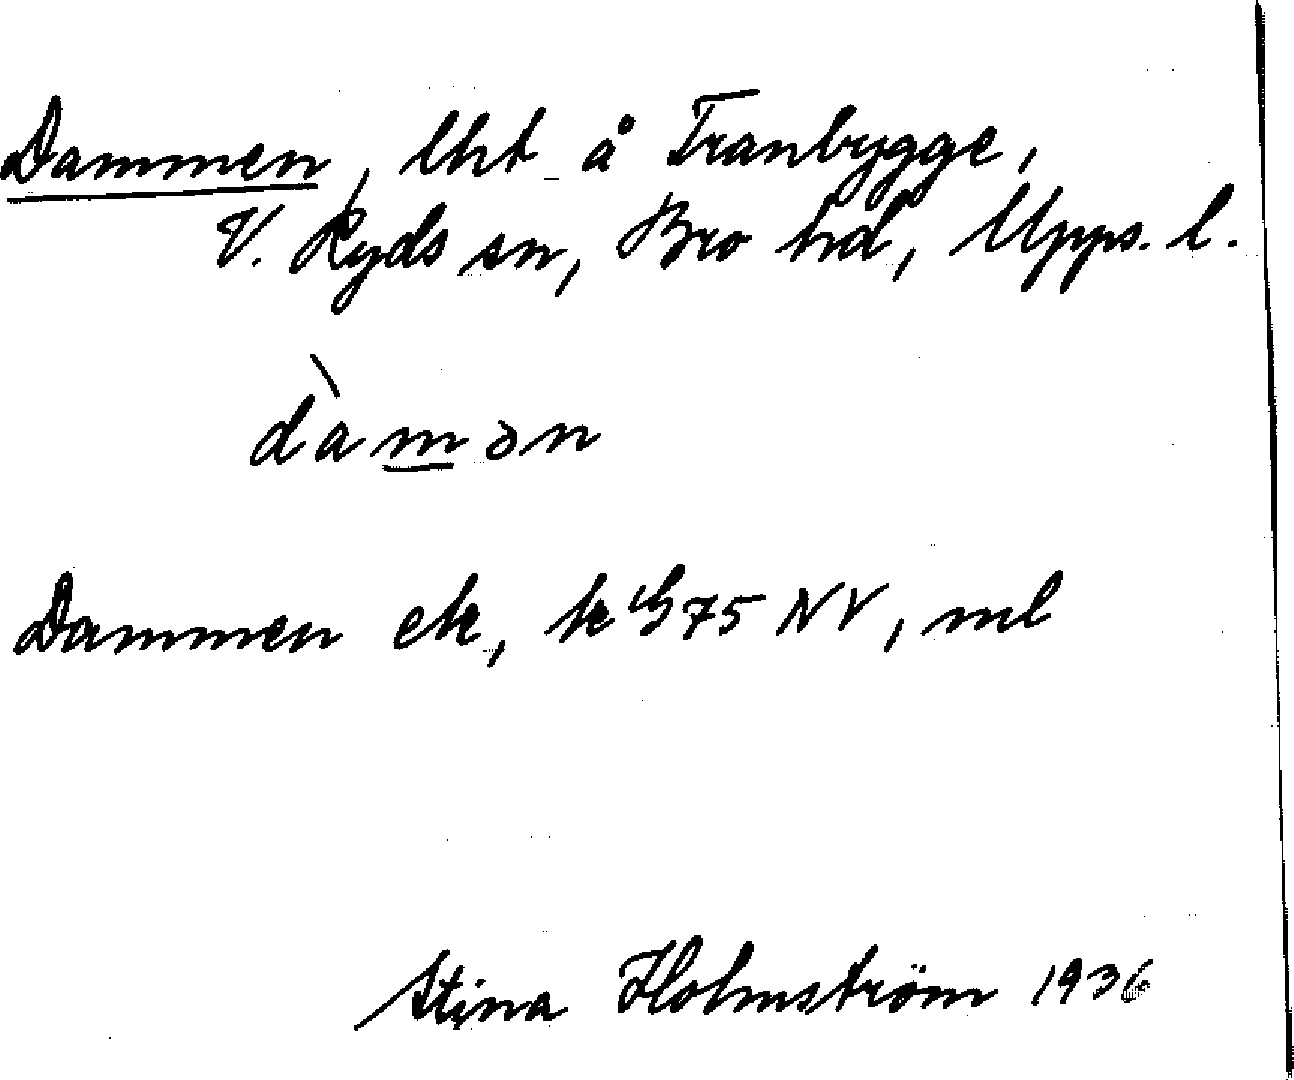 Dammen, lht å Tranbygge,
V. Ryds sn, Bro hd, Upps. l.
dàmən
Dammen ek, k 75 NV, ml
Stina Holmström 1936